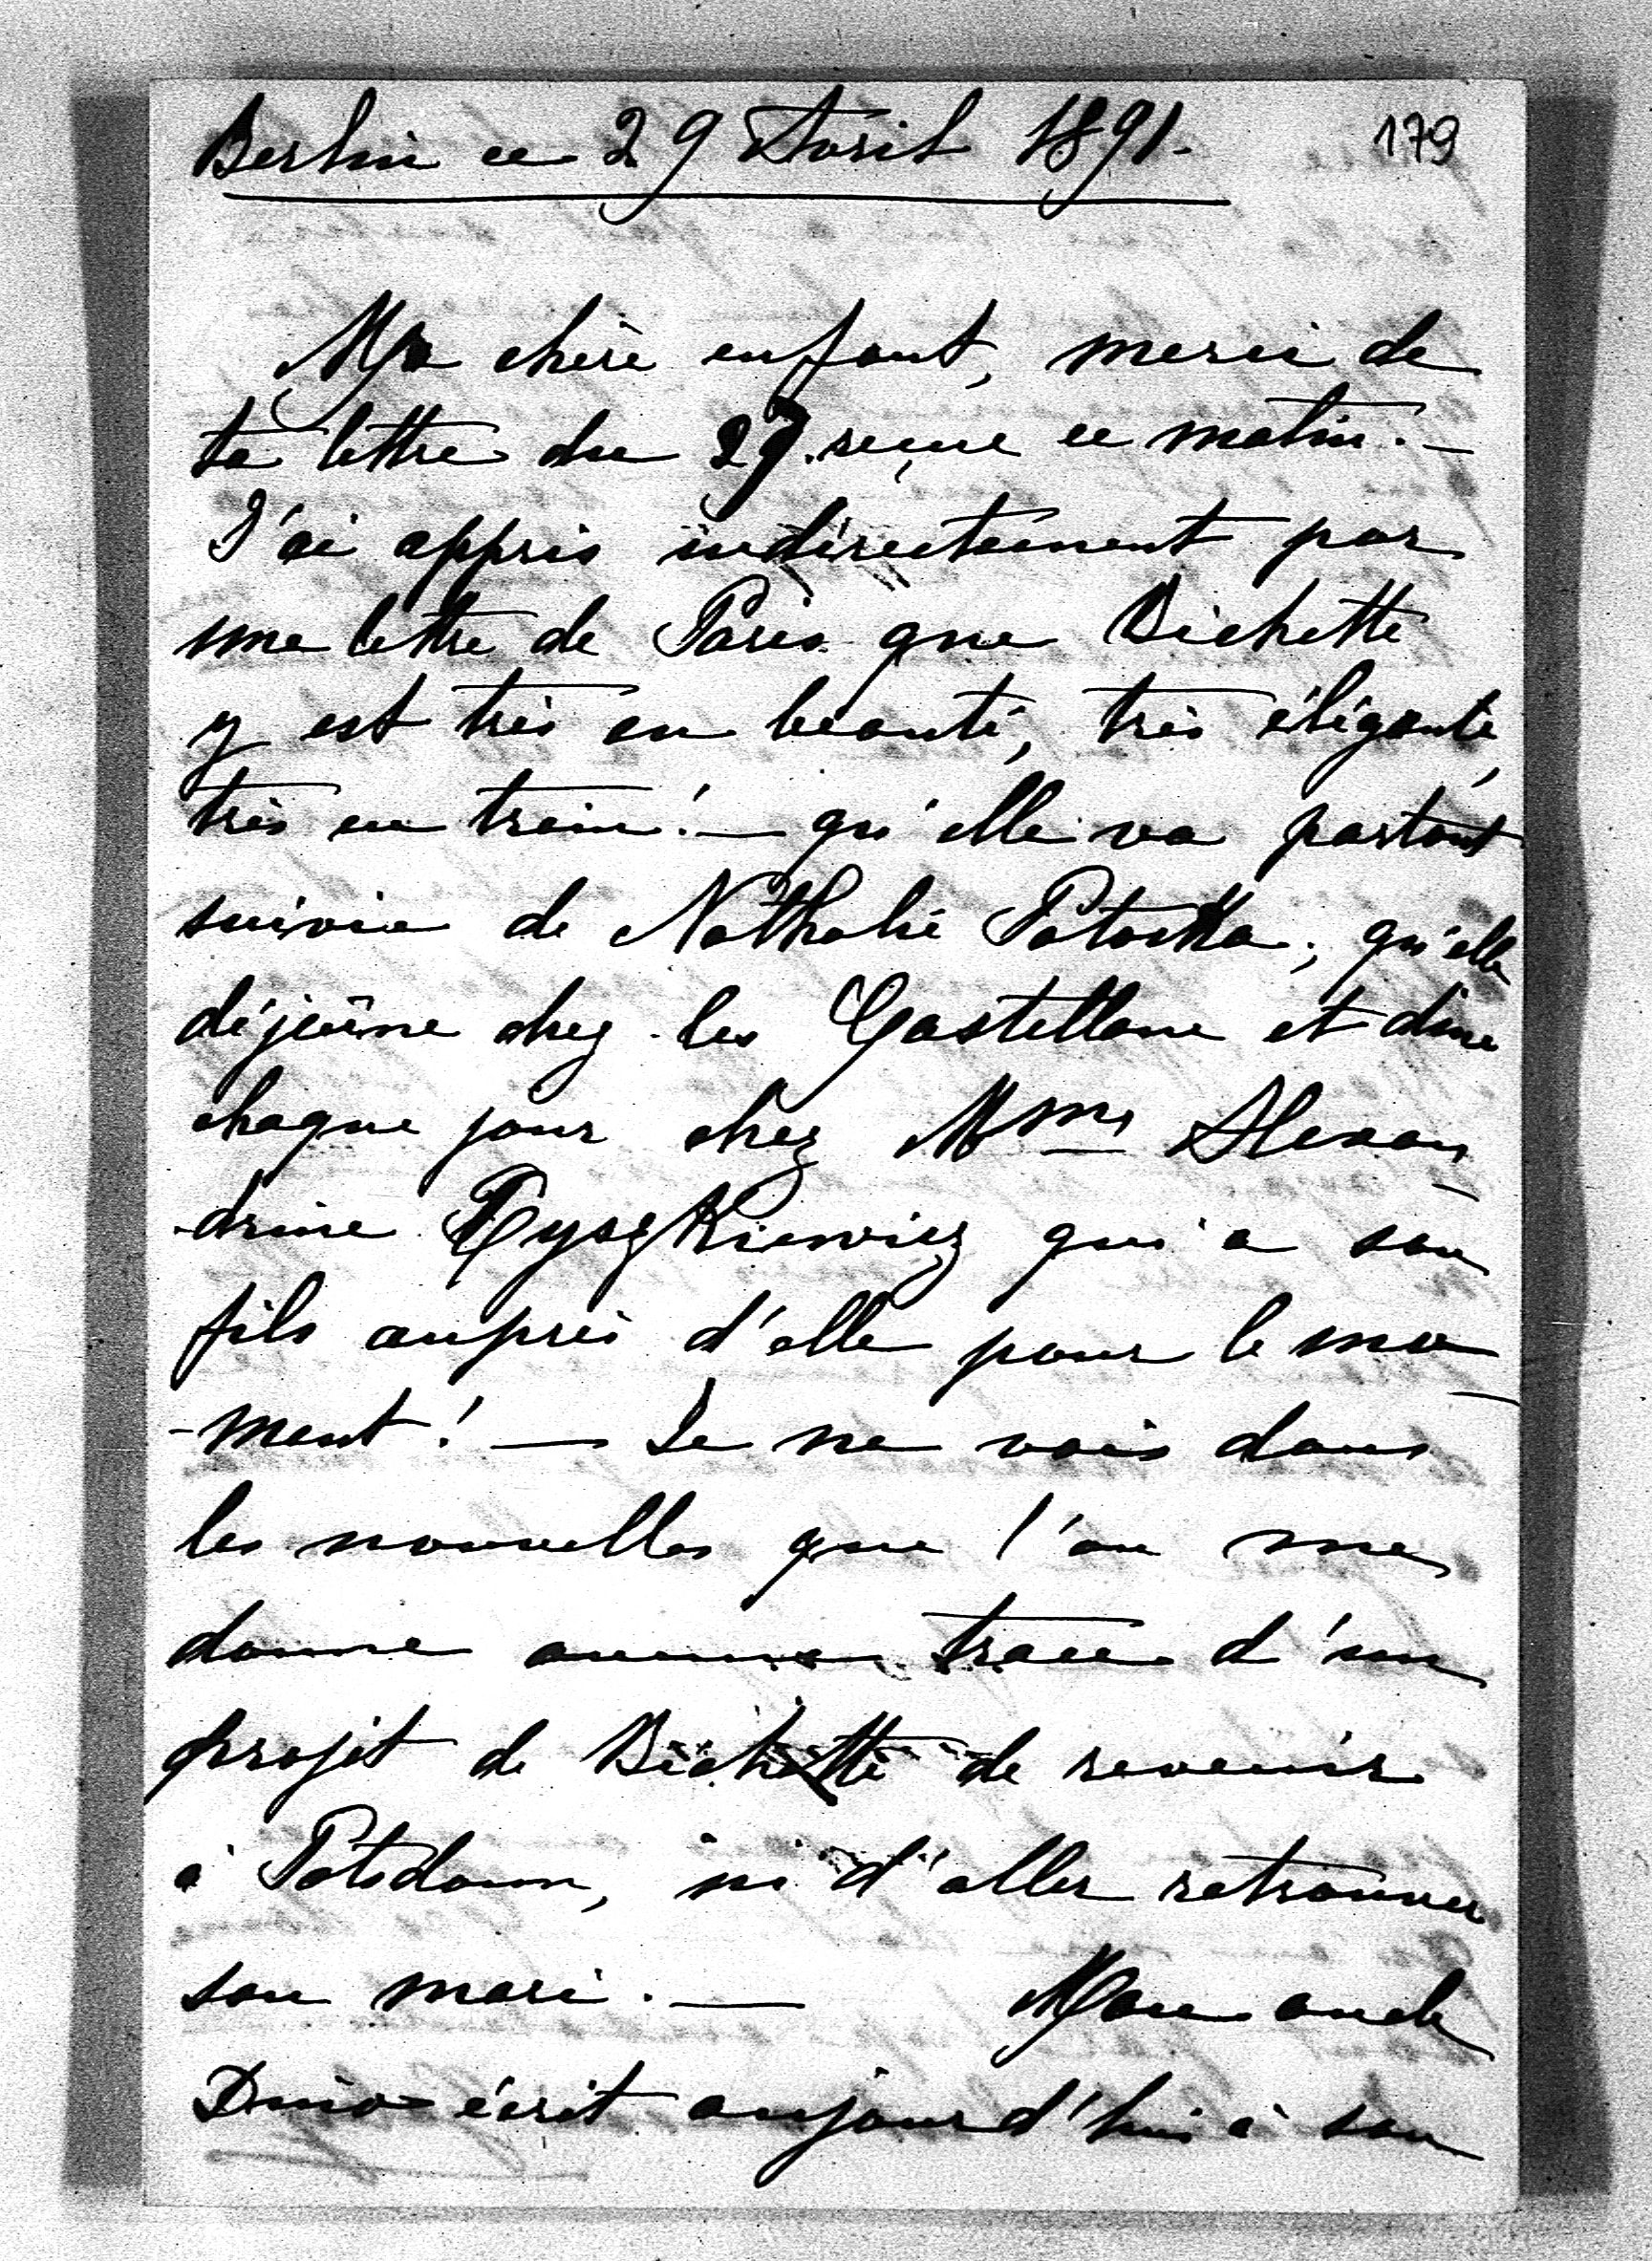 Berlin ce 29 Avril 1891.
179
Ma chère enfant, merci de
ta lettre du 27. reçue ce matin. —
J'ai appris indirectement par
une lettre de Paris que Bichette
y est très en beauté, très élégante,
très en train! — qu'elle va partout
suivie de Nathalie Potocka; qu'elle
déjeûne chez les Castellane et dine
chaque jour chez Mme Alexan-
-drine Tyszkiewicz qui a son
fils auprès d'elle pour le mo-
-ment! — Je ne vois dans
les nouvelles que l'on me
donne aucune trace d'un
projet de Bichette de revenir
à Potsdam, ni d'aller retrouver
son mari. — Mon oncle
Dino écrit aujourd'hui à son